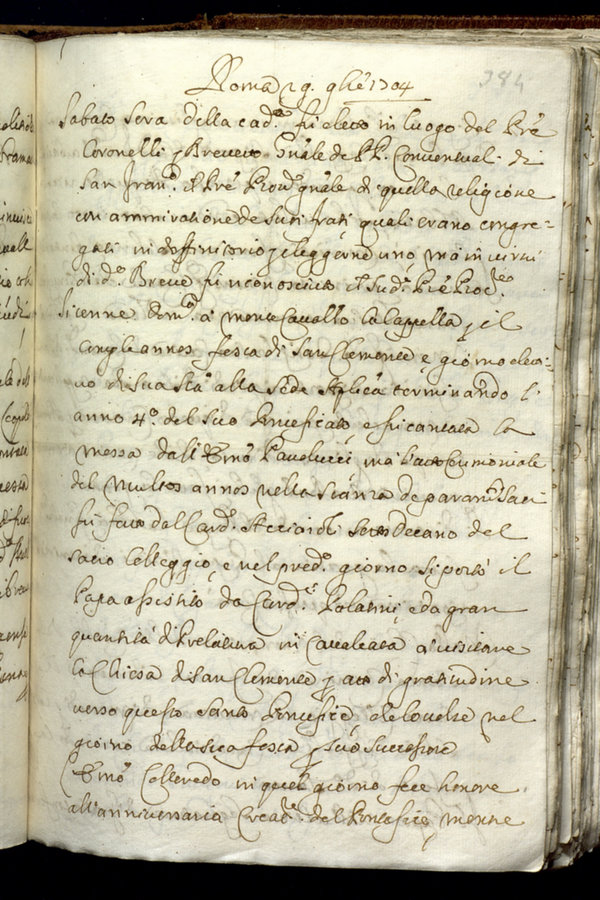 Roma 29. 9bre 1704
384
Sabato Sera della cad.e fu eletto in luogo del Pre
Coronelli p Brevetto Gnale de PP. Conventual. di
San Fran.o il Pre Proc.re gnale di quella religione
con ammiratione de suoi frati quali erano congre=
gati in deffinitorio p eleggerne uno, mà in virtù
di d.o Breve fu riconosciuto il Sud.o Pre Proc.re
Si tenne Dom.a à monte Cavallo la Cappella p il
Compleannos, festa di San Clemente e giorno eletti=
vo di Sua Stà alla Sede Aplica terminando l'
anno 4.o del Suo Pontificato, e fu cantata la
messa dall'Emo Paulucci, mà l'atto Cerimoniale
del Multos annos nella Stanza de paramti Sacri
fu fatto dal Card. Acciaioli Sotto Decano del
Sacro Colleggio, e nel pred.o giorno si portò il
Papa assistito da Card.i Palatini, e da gran
quantità di Prelatura in Cavalcata à visitare
la Chiesa di San Clemente p atto di gratitudine
verso questo Santo Pontefice, che lo volse nel
giorno della sua festa p suo Successore
L'Emo Colleredo in quel giorno fece honore
all'anniversaria Creat.e del Pontefice, mentre